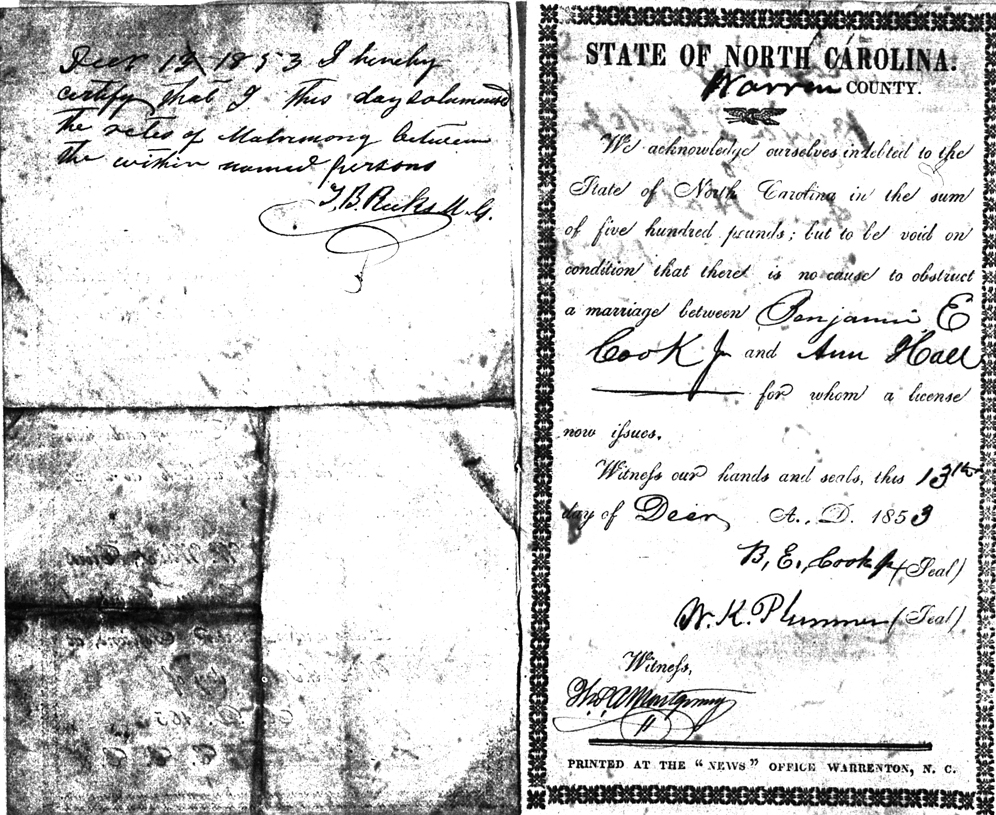 Decr 13 1853 I hereby
certify that I this day solumnised
the rites of Matrimony between
the within named persons
T. B. Ricks M. G.
STATE OF NORTH CAROLINA.
Warren COUNTY.
We acknowledge ourselves indebted to the
State of North Carolina in the sum
of five hundred pounds; but to be void on
condition that there is no cause to obstruct
a marriage between Benjamin E
Cook Jr and Ann Hall
for whom a license
now issues.
Witness our hands and seals, this 13th
day of Decr A. D. 1853
B. E. Cook Jr (Seal)
W. K. Plummer (Seal)
Witness,
Montgomery
PRINTED AT THE "NEWS" OFFICE WARRENTON, N. C.